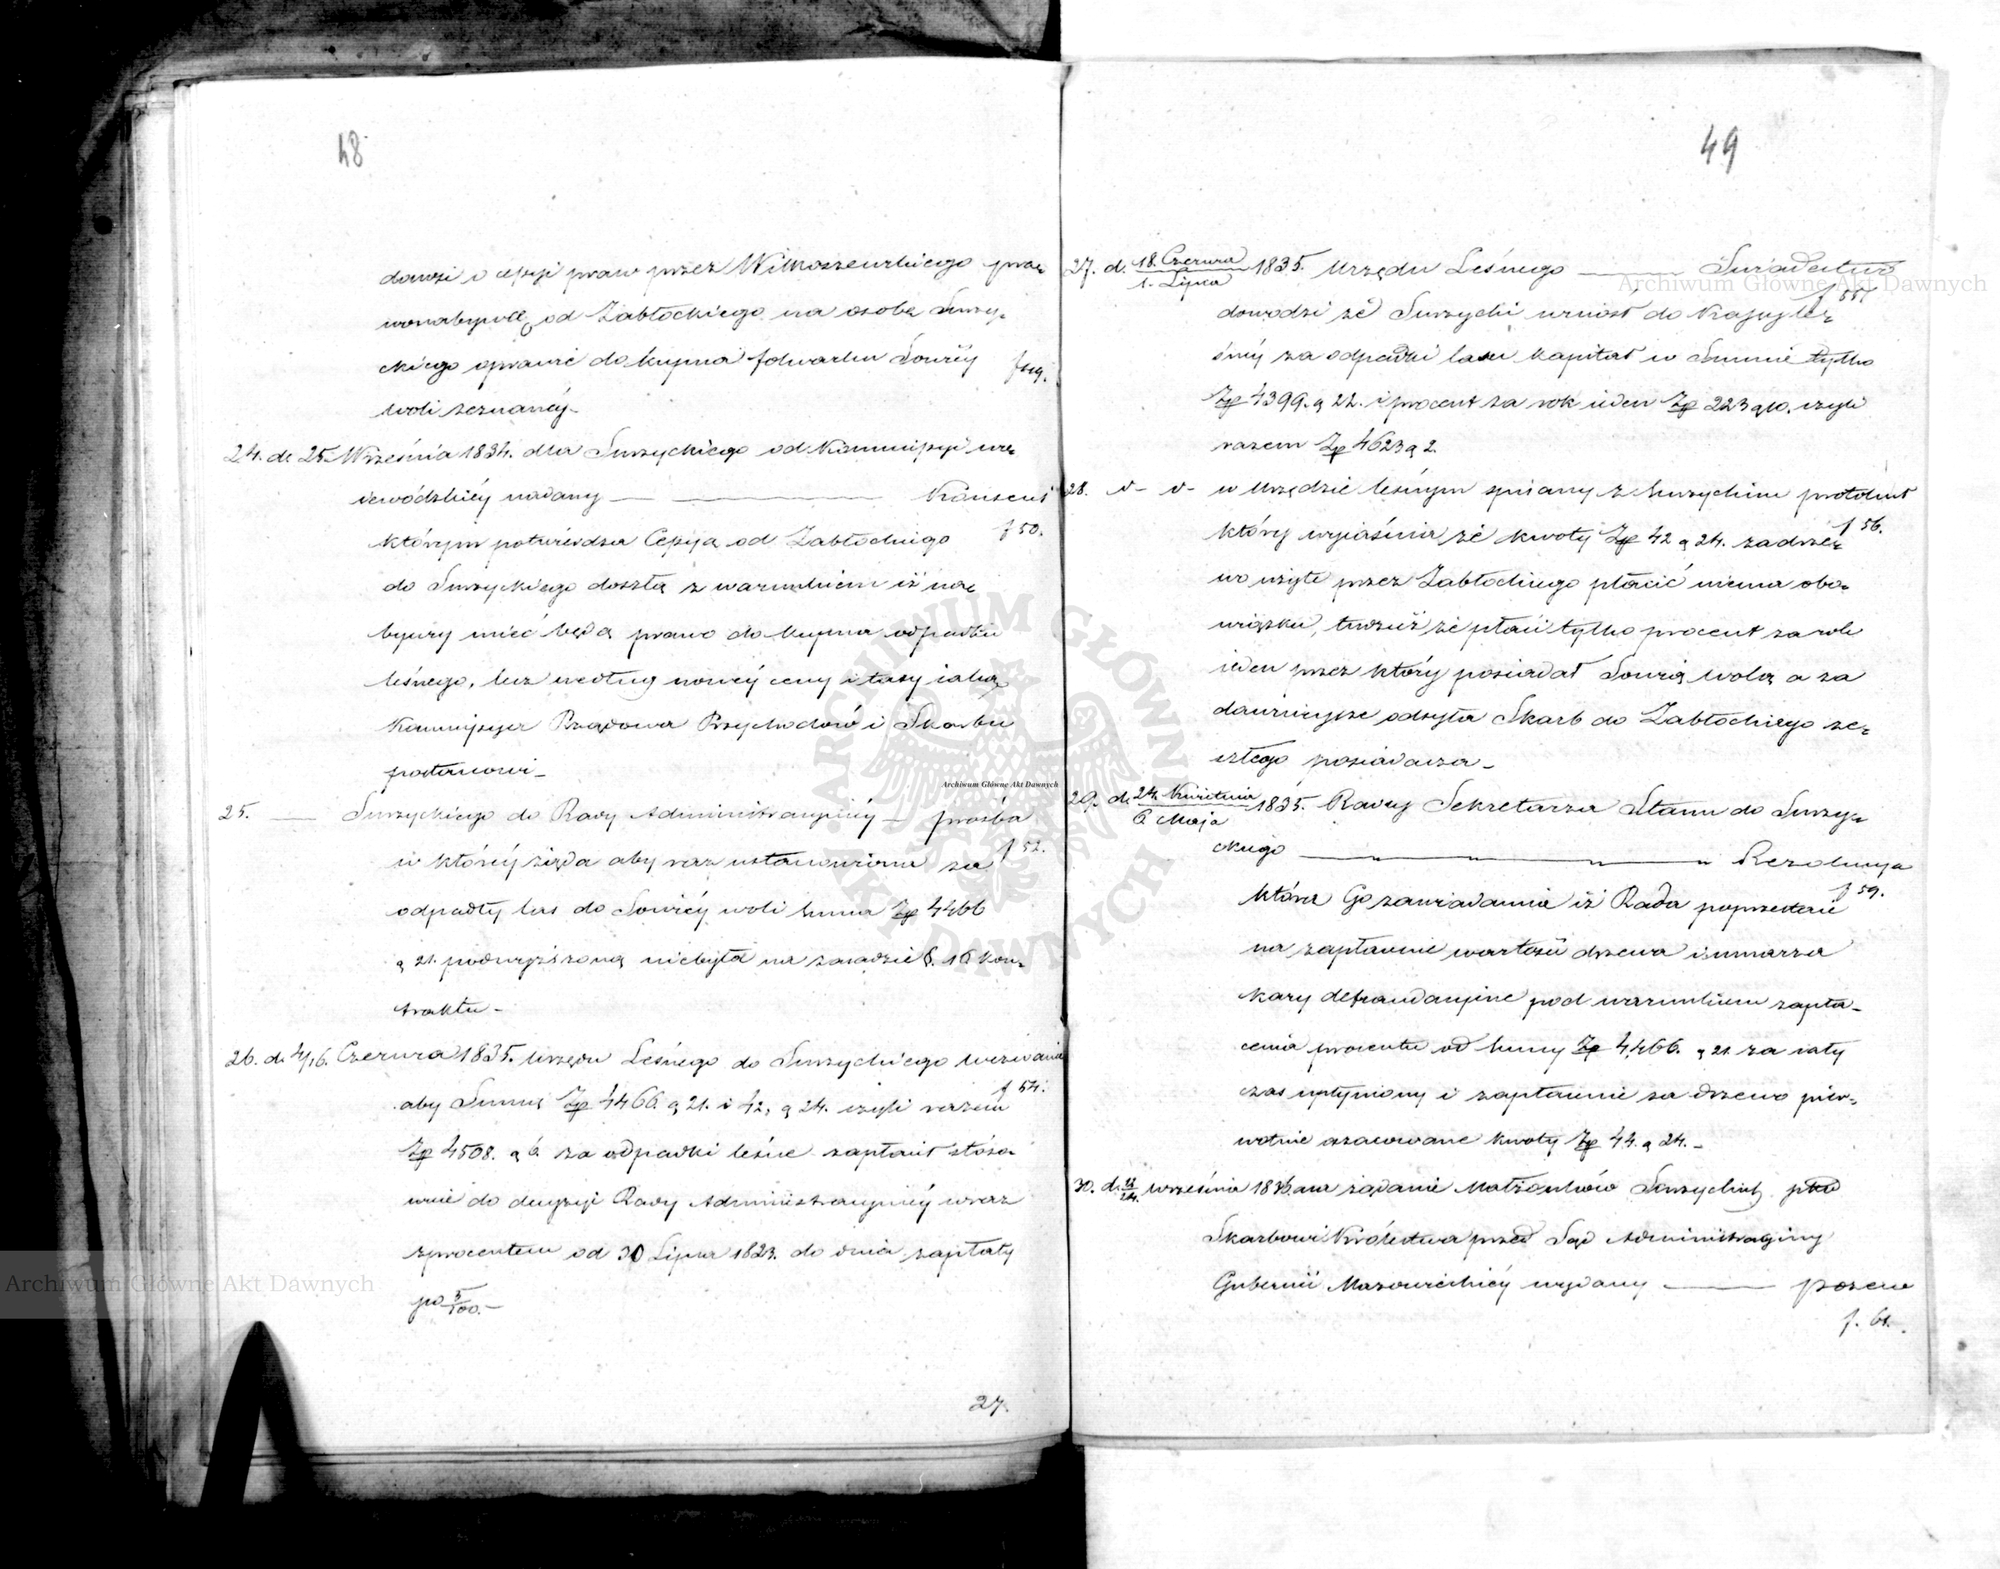 48
dowzi o cessyi praw przez Wilkoszewskiego pra=
wonabywcę od Zabłockiego na osobę Surzy=
ckiego oprawie do kupna folwarku Sowiéy
Woli zeznanéj -
24. d. 25. Września 1834. dla Surzyckiego od Kommissyi wo=
iewódzkiéy nadany — — Konsens
którym potwierdza Cessyą od Zabłockiego f 50.
do Surzyckiego doszłą z warunkiem iż na=
bywcy mieć będą prawo do kupna odpadku
leśnego, lecz według nowéy ceny i taxy iaką
Kommissya Rządowa Przychodów i Skarbu
postanowi -
25. — Surzyckiego do Rady Administracyinéy — prośba
w któréy żąda aby raz ustanowiona za f 52.
odpadły las do Sowiéy woli summa Zp 4466
g 21. podwyższoną niebyła na zasadzie §. 16 kon=
traktu -
26. d. 4/16. Czerwca 1835. Urzędu Leśnego do Surzyckiego wezwanie
aby Summę Zp 4466 g 21. i 42, g 24. czyli razem f 54.
Zp 4508. g 6. za odpadki leśne zapłacił stóso=
wnie do decyzyi Rady Administracyinéy wraz
zprocentem od 30 Lipca 1823. do dnia zapłaty
po 5/100. -
27.
49
27. d. 18. Czerwca / 1. Lipca 1835. Urzędu Leśnego — Świadectwo
dowodzi że Surzycki wniósł do Kassy le= f 55
śnéy za odpadki lasu kapitał w Summie tylko
Zp 4399. g 22. i procent za rok ieden Zp 223 g 10. czyli
razem Zp 4623 g 2.
28. d- d- w Urzędzie leśnym spisany z Surzyckim protokuł
który wyiaśnia że kwoty Zp 42 g 24. za drze= f 56.
wo użyte przez Zabłockiego płacić niema obo=
wiązku, tudzież że płaci tylko procent za rok
ieden przez który posiadał Sowią wolą a za
dawnieysze odsyła Skarb do Zabłockiego ze=
szłego posiadacza -
29. d. 24. Kwietnia / 6 Maja 1835. Rady Sekretarza Stanu do Surzy=
ckiego — Rezolucya
która Go zawiadamia iż Rada poprzestaie f 59.
na zapłacenie wartości drzewa i umarza
kary defraudacyine pod warunkiem zapła=
cenia procentu od Summy Zp 4,466. g 21. za cały
czas upłyniony i zapłacenie za drzewo pier=
wotnie oszacowane kwoty Zp 44. g 24. -
30. d. 12/24. września 1836. na żądanie Małżonków Surzyckich pko
Skarbowi Królestwa przed Sąd Administracyiny
Gubernii Mazowieckiéy wydany — pozew
f. 61.
Archiwum Główne Akt Dawnych
Archiwum Główne Akt Dawnych
Archiwum Główne Akt Dawnych
ARCHIWUM GŁÓWNE AKT DAWNYCH